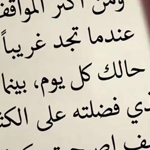 ومن أكثر المواقف
عندما تجد غريباً
حالك كل يوم، بينما
ذي فضلته على الكث